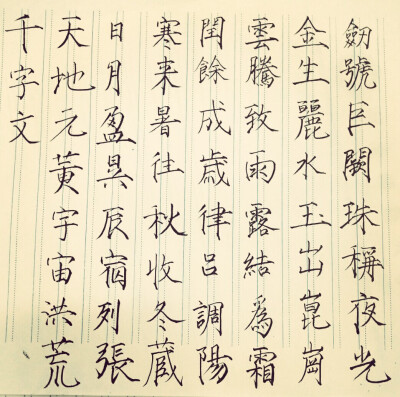 千字文
天地元黃宇宙洪荒
日月盈昃辰宿列張
寒来暑往秋收冬藏
閏餘成歲律呂調陽
雲騰致雨露結爲霜
金生麗水玉出崑崗
劒號巨闕珠稱夜光